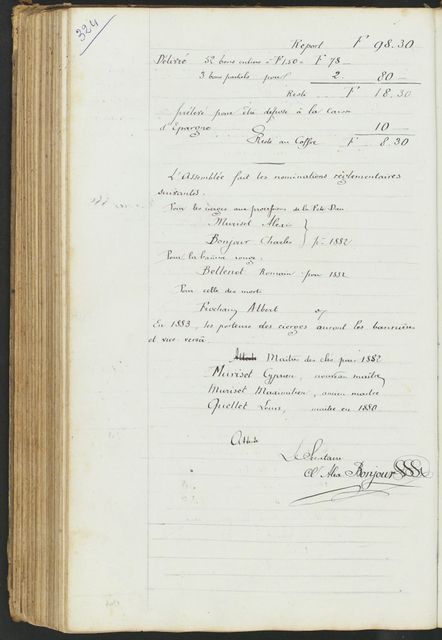 324
Report Fr 98.30
Délivré 52 bons entiers à F 1.50 = F 78 —
3 bons partiels pour 2. 80 —
Reste Fr 18.30
prélevé pour être déposé à la Caisse
d'Epargne 10 —
Reste au Coffre F 8.30
L'Assemblée fait les nominations réglementaires
suivantes.
Pour les cierges aux processions de la Fête Dieu
Muriset Alexis
Bonjour Charles } pr 1882
Pour la bannière rouge.
Bellenot Romain pour 1882
Pour celle des morts
Frochaux Albert
En 1883, les porteurs des cierges auront les bannières
et vice versa
Maîtres des clés pour 1882
Muriset Cyprien, nouveau maître
Muriset Maximilien, ancien maître
Quellet Louis, maître en 1880
Atteste
Le Secrétaire
Cl Alex Bonjour